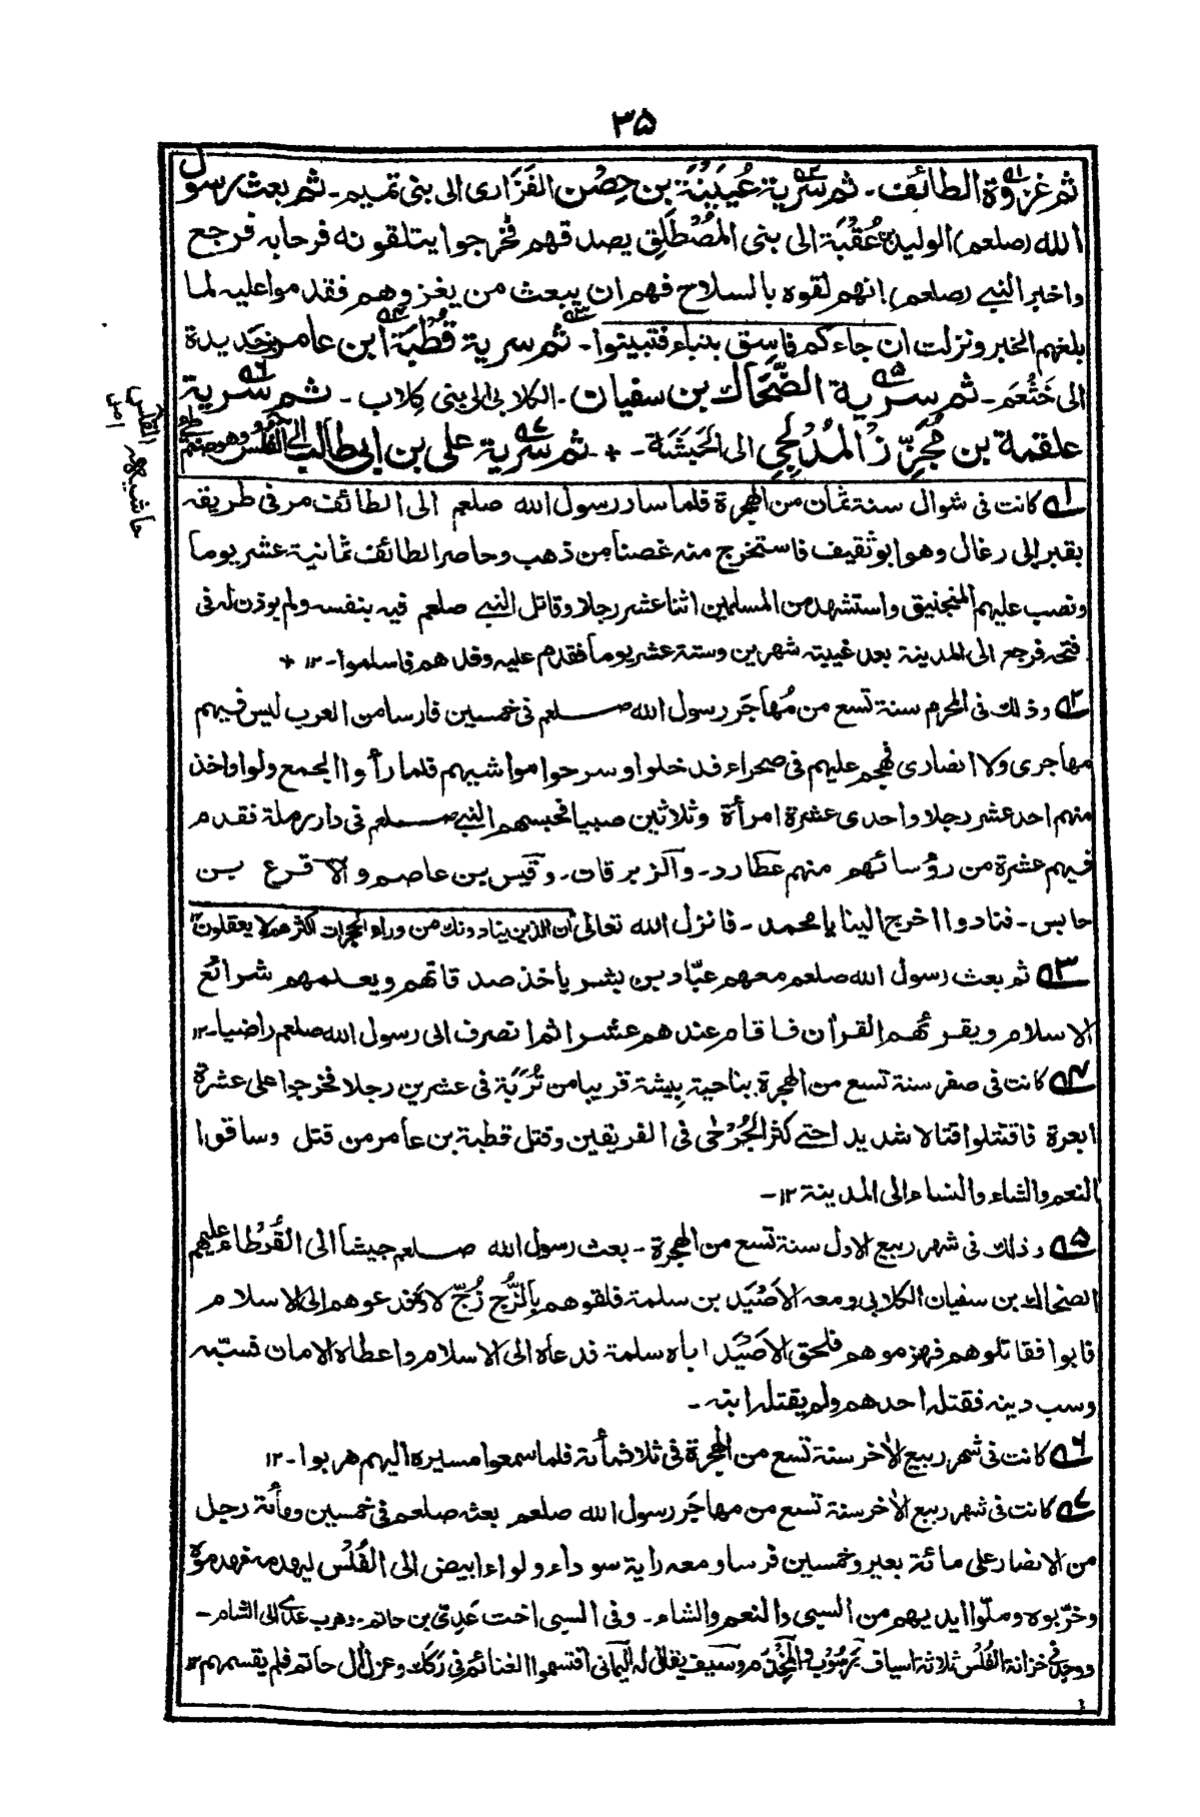 ۳۵
ثم غزوة الطائف - ثم سرية عُيَيْنَة بن حِصْن الفَزَاری الی بنی تمیم - ثم بعث رسول
الله (صلعم) الولید بن عُقْبَة الی بنی المُصْطَلِق یصد قهم فخرجوا یتلقونه فرحا به فرجع
واخبر النبی (صلعم) انهم لقوه بالسلاح فهم ان یبعث من یغزوهم فقدموا علیه لما
بلغهم الخبر ونزلت ان جاءکم فاسق بنباء فتبینوا - ثم سریة قُطْبَة ابن عامر بن حدیدة
الی خَثْعَم - ثم سریة الضّحاک بن سفیان - الکلابی الی بنی کِلاب - ثم سریة
علقمة بن مُجَزِّز المُدْلِجِی الی الحَبَشَة - + - ثم سریة علی بن ابی طالب الی الفُلْس وهو صنم طی
القلس
حاشیه
۱ کانت فی شوال سنة ثمان من الهجرة فلما سار رسول الله صلعم الی الطائف مر فی طریقه
بقبر ابی رغال وهو ابو ثقیف فاستخرج منه غصنا من ذهب وحاصر الطائف ثمانیة عشر یوما
ونصب علیهم المنجنیق واستشهد من المسلمین اثنا عشر رجلا وقاتل النبی صلعم فیه بنفسه ولم یوذن له فی
فتحه فرجع الی المدینة بعد غیبته شهرین وستة عشر یوما فقدم علیه وفد هم فاسلموا - ۱۲ +
۲ وذلک فی المحرم سنة تسع من مُهاجَر رسول الله صلعم فی خمسین فارسا من العرب لیس فیهم
مهاجری ولا انصاری فهجم علیهم فی صحراء قد خلوا وسرحوا مواشیهم فلما رأوا الجمع ولوا واخذ
منهم احد عشر رجلا واحدی عشرة امرأة وثلاثین صبیا فحبسهم النبی صلعم فی دار رملة فقدم
فیهم عشرة من رؤسائهم منهم عطارد - والزبرقان - وقیس بن عاصم والاقرع بن
حابس - فنادوا اخرج الینا یا محمد - فانزل الله تعالی ان الذین ینادونک من وراء الحجرات اکثرهم لا یعقلون ۱۲
۳ ثم بعث رسول الله صلعم معهم عبّاد بن بشر یأخذ صد قاتهم ویعلمهم شرائع
الاسلام ویقرئهم القرأن فاقام عندهم عشرا ثم انصرف الی رسول الله صلعم راضیا - ۱۲
۴ کانت فی صفر سنة تسع من الهجرة بناحیة بِیشة قریبا من تُرَبَة فی عشرین رجلا فخرجوا علی عشرة
ابعرة فاقتتلوا قتالا شدیدا حتی کثر الجُرْحی فی الفریقین وقتل قطبة بن عامر من قتل وساقوا
النعم والشاء والنساء الی المدینة ۱۲ -
۵ وذلک فی شهر ربیع الاول سنة تسع من الهجرة - بعث رسول الله صلعم جیشا الی القُرْطاء علیهم
الضحاک بن سفیان الکلابی ومعه الاَصْیَد بن سلمة فلقوهم بالزُّج زُجّ لاوة فدعوهم الی الاسلام
فابوا فقاتلوهم فهزموهم فلحق الاَصْیَد اباه سلمة فدعاه الی الاسلام واعطاه الامان فسبّه
وسب دینه فقتله احدهم ولم یقتله ابنه -
۶ کانت فی شهر ربیع الاٰخر سنة تسع من الهجرة فی ثلاثمأئة فلما سمعوا مسیره الیهم هربوا - ۱۲
۷ کانت فی شهر ربیع الاٰخر سنة تسع من مهاجَر رسول الله صلعم بعثه صلعم فی خمسین ومأئة رجل
من الانصار علی مائة بعیر وخمسین فرسا ومعه رایة سوداء ولواء ابیض الی الفُلْس لیهدمه فهدموه
وخربوه وملّوا ایدیهم من السبی والنعم والشاء - وفی السبی اخت عَدِیّ بن حاتم - وهرب عدی الی الشام -
ووجد فی خزانة الفُلْس ثلاثة اسیاف رسوب والمِخْذَم وسیف یقال له الیمانی اقتسموا الغنائم فی رَکَک وعزل اٰل حاتم فلم یقسمهم ۱۲